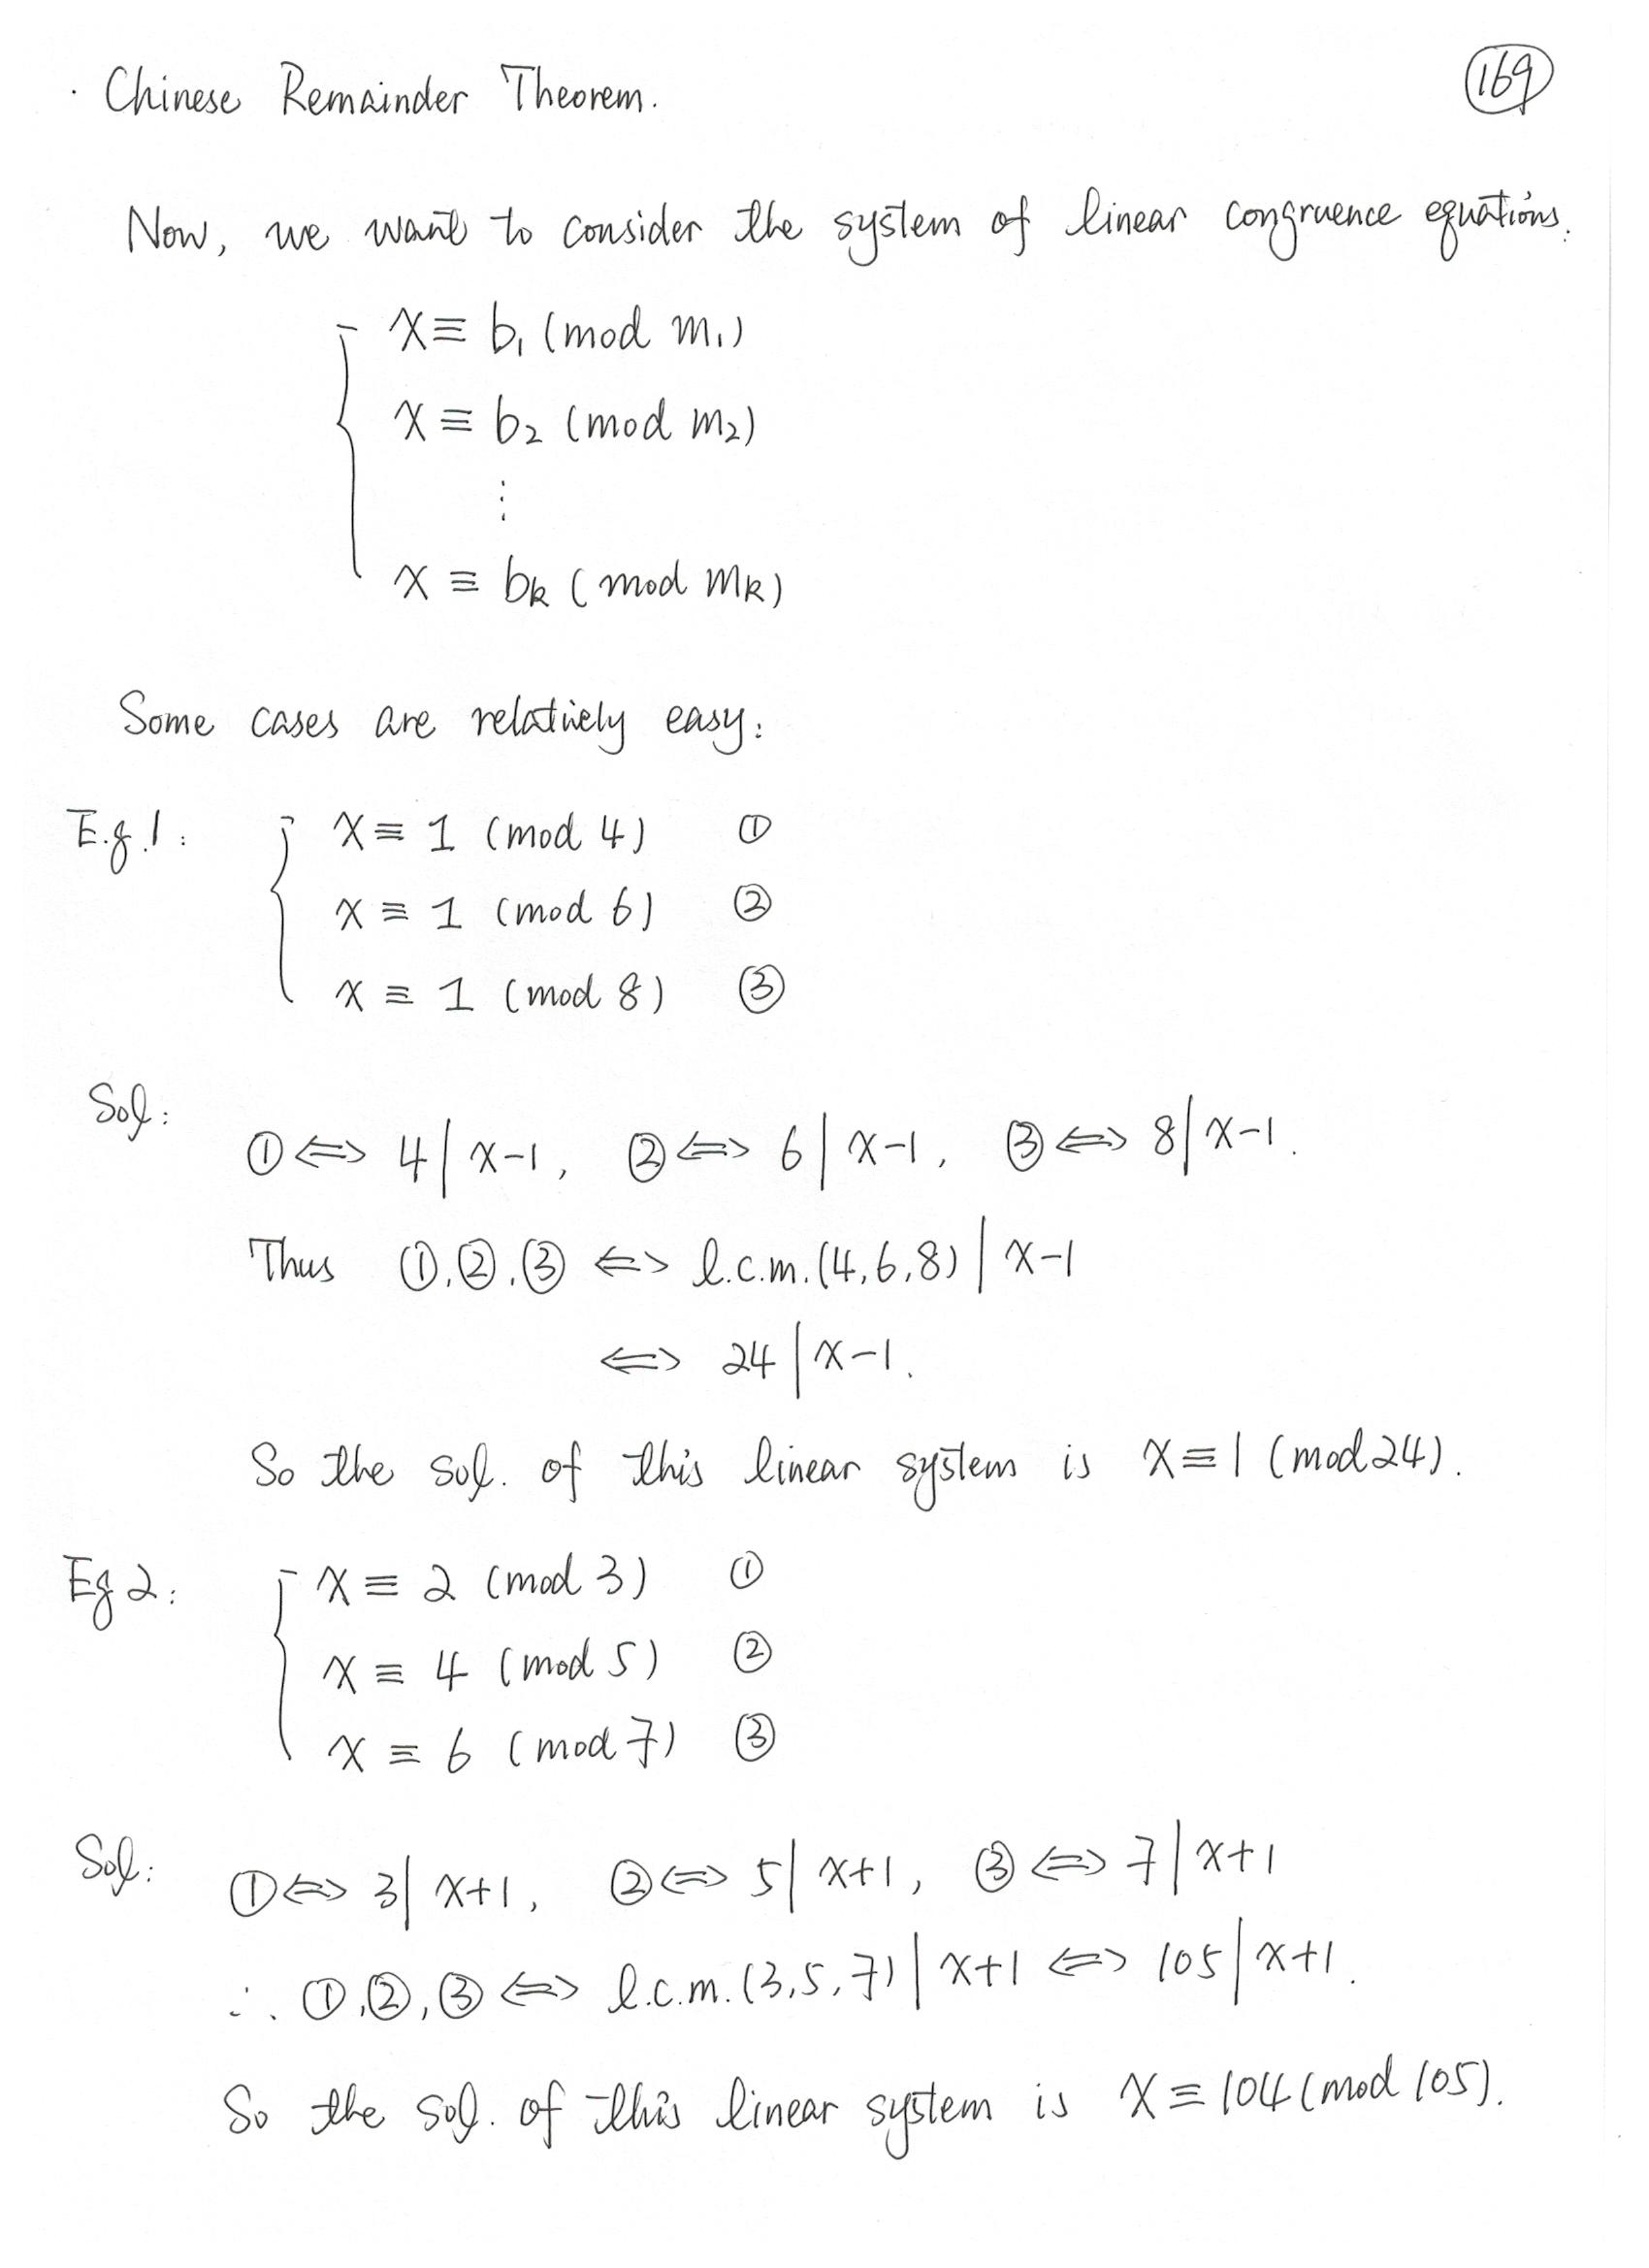 · Chinese Remainder Theorem. (169)
Now, we want to consider the system of linear congruence equations.
x ≡ b₁ (mod m₁)
x ≡ b₂ (mod m₂)
⋮
x ≡ bₖ (mod mₖ)
Some cases are relatively easy:
E.g.1: x ≡ 1 (mod 4) ①
x ≡ 1 (mod 6) ②
x ≡ 1 (mod 8) ③
Sol:
① ⇔ 4 | x-1, ② ⇔ 6 | x-1, ③ ⇔ 8 | x-1.
Thus ①.②.③ ⇔ l.c.m.(4,6,8) | x-1
⇔ 24 | x-1.
So the sol. of this linear system is x ≡ 1 (mod 24).
Eg 2: x ≡ 2 (mod 3) ①
x ≡ 4 (mod 5) ②
x ≡ 6 (mod 7) ③
Sol: ① ⇔ 3 | x+1, ② ⇔ 5 | x+1, ③ ⇔ 7 | x+1
∴ ①,②,③ ⇔ l.c.m.(3,5,7) | x+1 ⇔ 105 | x+1.
So the sol. of this linear system is x ≡ 104 (mod 105).